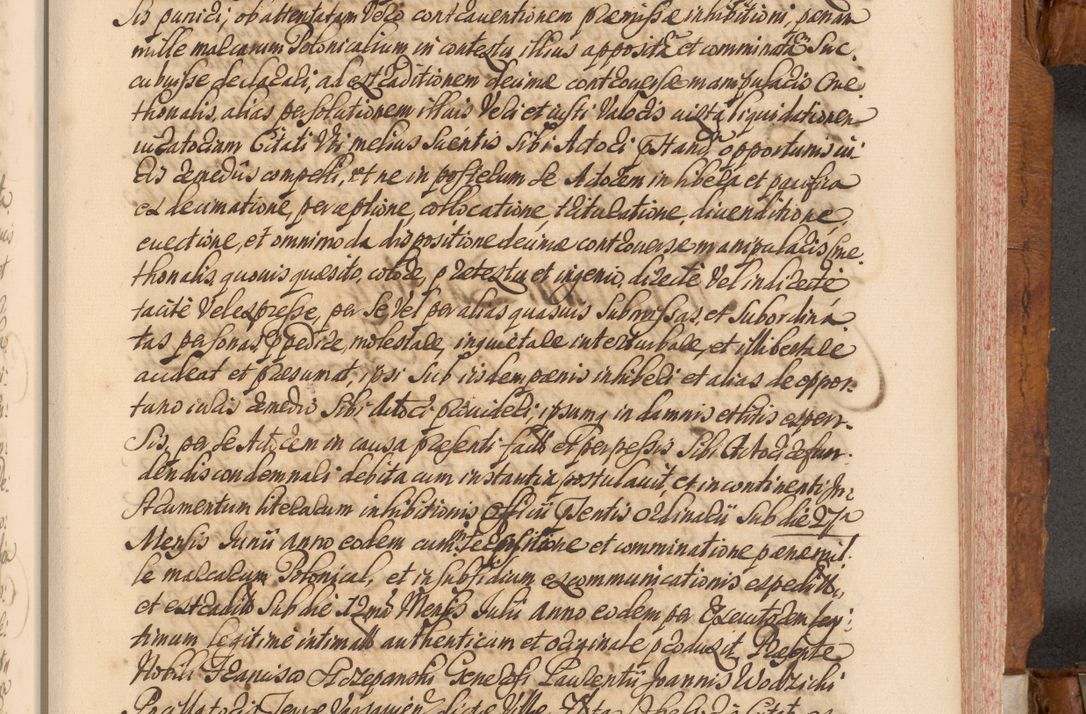 sis puniri, ob attentatam vero contraventionem præmissæ inhibitioni, pænam
mille marcarum Polonicalium in contextu illius apposita et comminata Suc
cubuisse declarari, ad extraditionem decimæ controversæ manipularis Cme
thonalis, alias persolutionem illius Veri et iusti Valoris iuxta liquidationem
iuratoriam Citati Vti melius scientis Sibi Actori pstand opportunis iu
ris remediis compelli, et ne in posterum se Actorem in libera et pacifica
ex decimatione, perceptione, collocatione, trituratione, divenditione,
evectione, et omnimoda dispositione decimæ controversæ manipularis Cme
thonalis, quovis quæsito, colore, prætextu et ingenio, directè Vel indirectè
tacitè Vel expresse, per se Vel per alias quasvis Submissas, et Subordina
tas personas ppedire, molestare, inquietare inturbare, et illibertare
audeat et præsumat, ipsi Sub iisdem pænis inhiberi et alias de oppor-
tuno iuris remedio Sibi Actori provideri, ipsumq in damnis et litis expen-
sis, per se Actorem in causa præsenti factis et perpessis Sibi Actori refun-
dendis condemnari debita cum instantia postulavit, et in continenti In
strumentum literarum inhibitionis Officii psentis Ordinarii Sub die 27a
Mensis Junii anno eodem cum appositione et comminatione pænæ mil
le marcarum Polonical, et in subsidium excommunicationis expeditu,
et extradit Sub die 12ma Mensis Julii anno eodem per Executorem legi
timum legitime intimatu authenticum et originale produxit, Præsente
Nobili Francisco Szczepanski Gnerosi Laurentii Joannis Wodzicki